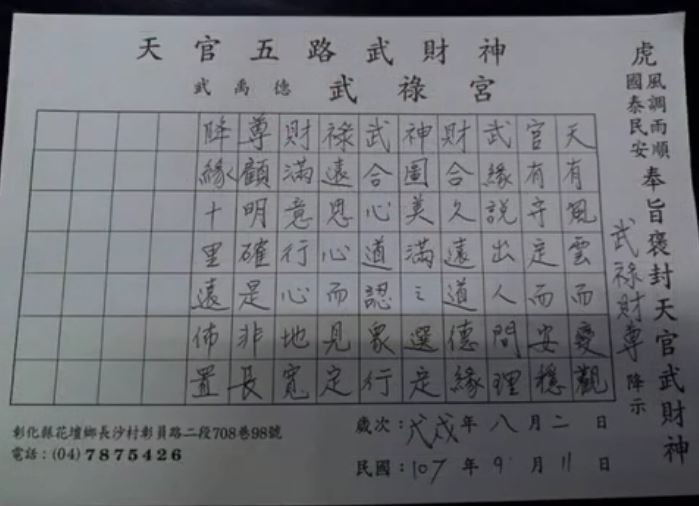 天官五路武財神
武禹德 武祿宮
虎
風調雨順
國泰民安
奉旨褒封天官武財神
武祿財尊 降示
天有風雲而變觀
官有守定而安穩
武緣說出人間理
財合久遠道德緣
神圖美滿之選定
武合心道認眾行
祿遠思心而見定
財滿意行心地寬
尊顧明確是非長
降緣十里遠佈置
歲次：戊戌年八月二日
民國：107年9月11日
彰化縣花壇鄉長沙村彰員路二段708巷98號
電話：(04) 7875426